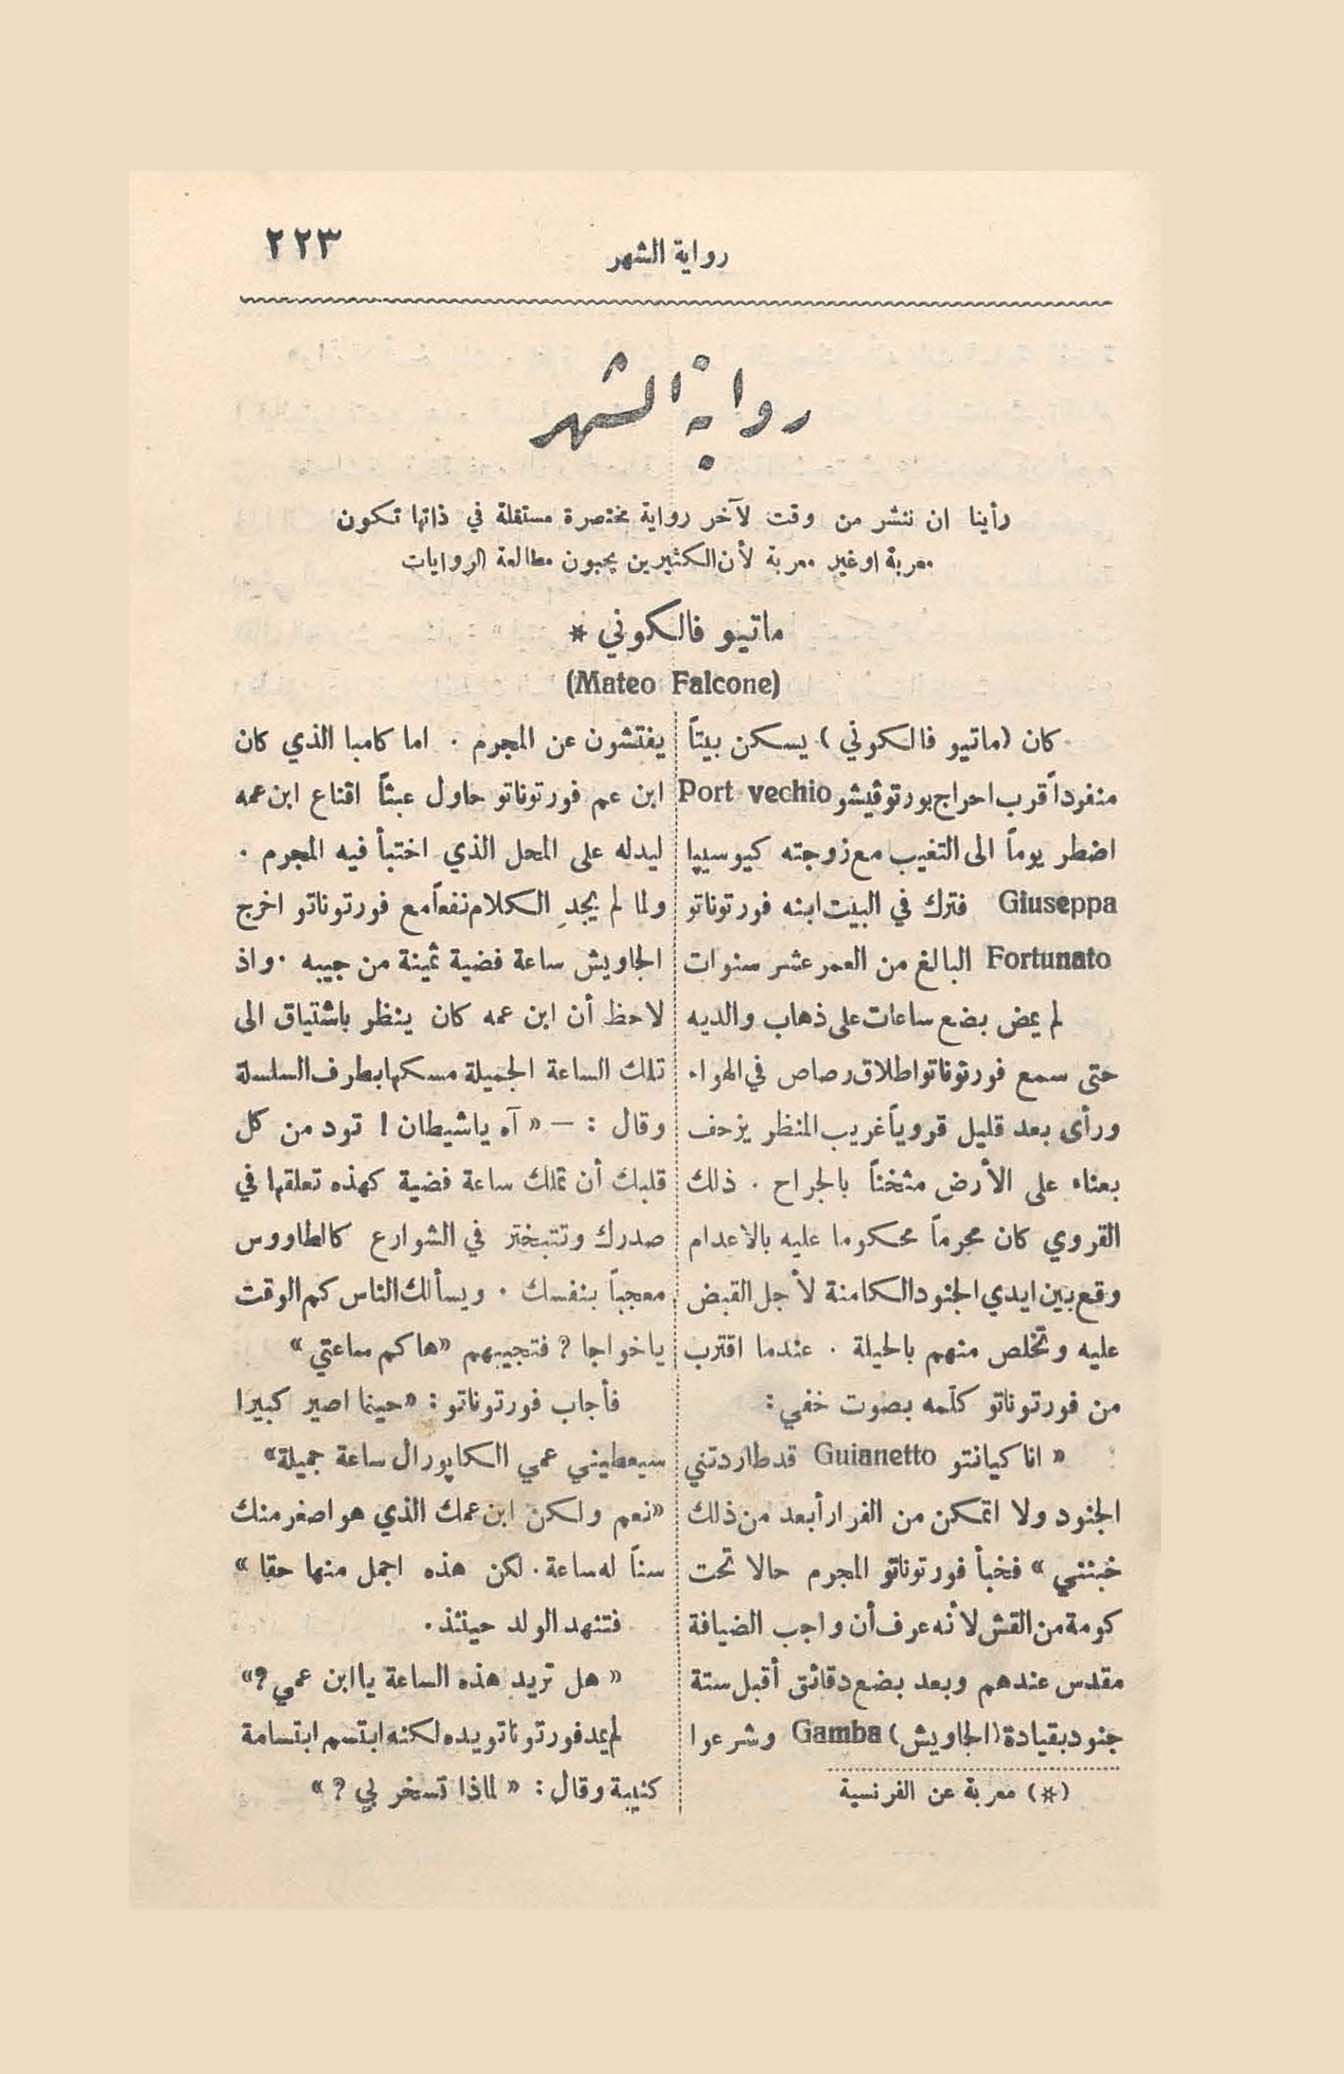 رواية الشهر
٢٢٣
رواية الشهر
رأينا ان ننشر من وقت لآخر رواية مختصرة مستقلة في ذاتها تكون
معربة او غير معربة لأن الكثيرين يحبون مطالعة الروايات
ماتيو فالكوني *
(Mateo Falcone)
كان (ماتيو فالكوني) يسكن بيتاً
منفرداً قرب احراج بورتوڤيشو Port vechio
اضطر يوماً الى التغيب مع زوجته كيوسيپا
Giuseppa فترك في البيت ابنه فورتوناتو
Fortunato البالغ من العمر عشر سنوات
لم يمض بضع ساعات على ذهاب والديه
حتى سمع فورتوناتو اطلاق رصاص في الهواء
ورأى بعد قليل قروياً غريب المنظر يزحف
بعناء على الأرض مثخناً بالجراح . ذلك
القروي كان مجرماً محكوما عليه بالاعدام
وقع بين ايدي الجنود الكامنة لأجل القبض
عليه وتخلص منهم بالحيلة . عندما اقترب
من فورتوناتو كلّمه بصوت خفي :
« انا كيانتو Guianetto قد طاردتني
الجنود ولا اتمكن من الفرار أبعد من ذلك
خبئني » فخبأ فورتوناتو المجرم حالا تحت
كومة من القش لأنه عرف أن واجب الضيافة
مقدس عندهم وبعد بضع دقائق أقبل ستة
جنود بقيادة (الجاويش) Gamba وشرعوا
(*) معربة عن الفرنسية
يفتشون عن المجرم . اما كامبا الذي كان
ابن عم فورتوناتو حاول عبثاً اقناع ابن عمه
ليدله على المحل الذي اختبأ فيه المجرم .
ولما لم يجدِ الكلام نفعاً مع فورتوناتو اخرج
الجاويش ساعة فضية ثمينة من جيبه . واذ
لاحظ أن ابن عمه كان ينظر باشتياق الى
تلك الساعة الجميلة مسكها بطرف السلسلة
وقال : — « آه يا شيطان ! تود من كل
قلبك أن تملك ساعة فضية كهذه تعلقها في
صدرك وتتبختر في الشوارع كالطاووس
معجباً بنفسك . ويسألك الناس كم الوقت
يا خواجا ? فتجيبهم « هاكم ساعتي »
فأجاب فورتوناتو : « حينما اصير كبيرا
سيعطيني عمي الكاپورال ساعة جميلة »
« نعم ولكن ابن عمك الذي هو اصغر منك
سناً له ساعة . لكن هذه اجمل منها حقا »
فتنهد الولد حينئذ .
« هل تريد هذه الساعة يا ابن عمي ? »
لم يمد فورتوناتو يده لكنه ابتسم ابتسامة
كئيبة وقال : « لماذا تسخر بي ? »